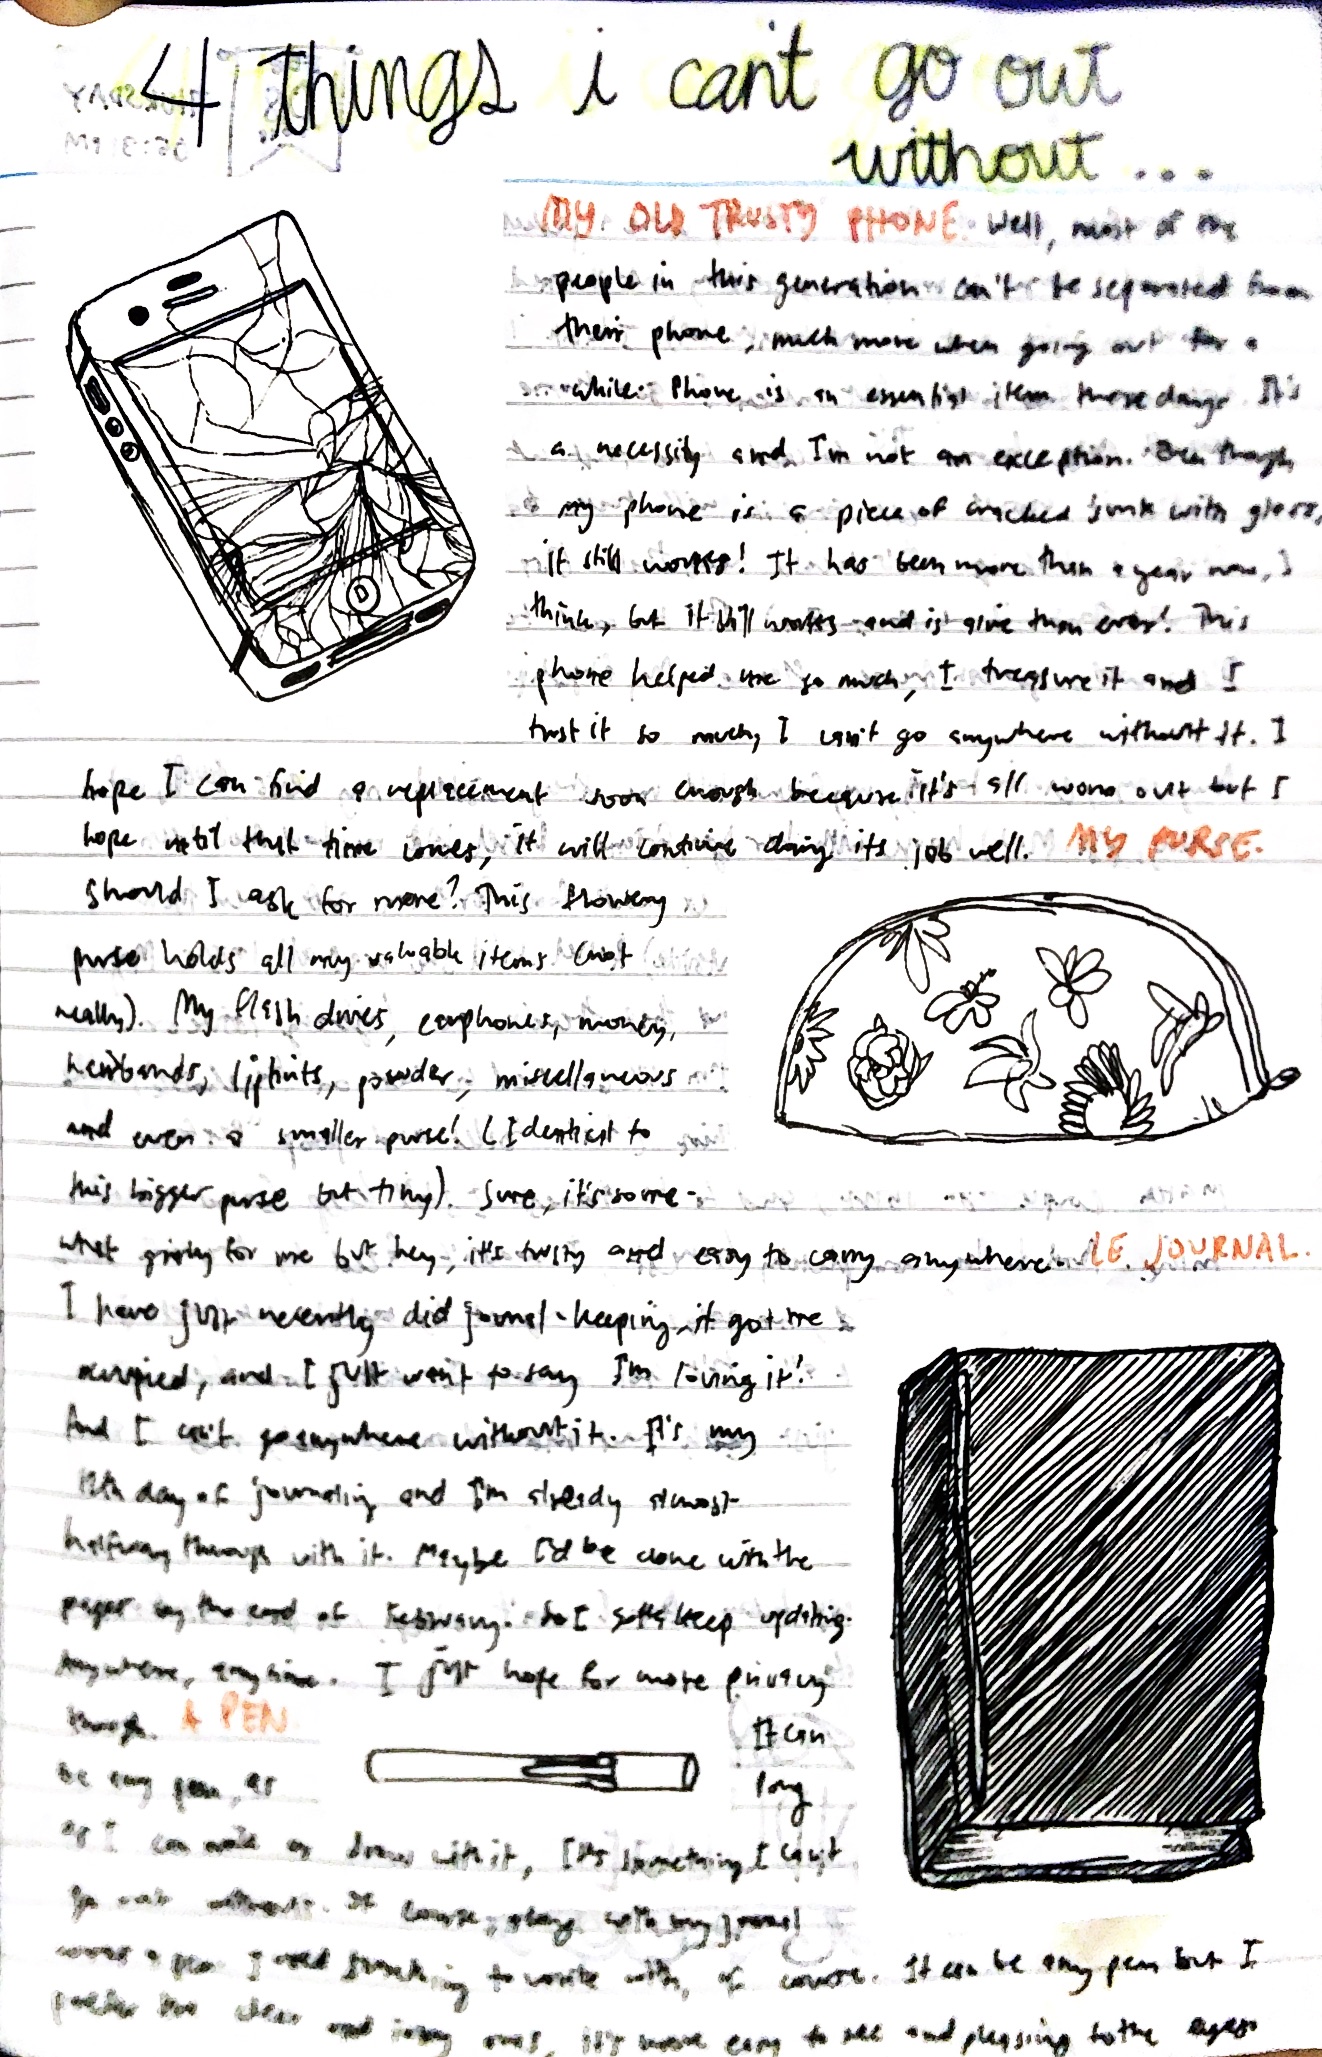 4 things i can't go out
without...
MY OLD TRUSTY PHONE. Well, most of the
people in this generation can't be separated from
their phone, much more when going out for a
while. Phone is an essential item these days. It's
a necessity and I'm not an exception. Even though
my phone is a piece of cracked junk with glass,
it still works! It has been more than a year now, I
think, but it still works and is alive than ever! This
phone helped me so much, I treasure it and I
trust it so much, I can't go anywhere without it. I
hope I can find a replacement soon enough because it's all worn out but I
hope until that time comes, it will continue doing its job well. MY PURSE.
Should I ask for more? This flowery
purse holds all my valuable items (not
really). My flash drives, earphones, money,
hairbands, liptints, powder, miscellaneous
and even a smaller purse! (Identical to
this bigger purse but tiny). Sure, it's some-
what girly for me but hey, it's trusty and easy to carry anywhere. LE JOURNAL.
I have just recently did journal-keeping, it got me
occupied, and I just want to say I'm loving it!
And I can't go anywhere without it. It's my
day of journaling and I'm already almost
halfway through with it. Maybe I'd be done with the
pages by the end of February. So I gotta keep updating.
Anywhere, anytime. I just hope for more privacy
though. A PEN. It can
be any pen, as long
as I can write or draw with it, It's something I can't
go out without. Of course, along with my journal
comes a pen. I need something to write with, of course. It can be any pen but I
prefer the clear and inky ones, it's more easy to see and pleasing to the eyes